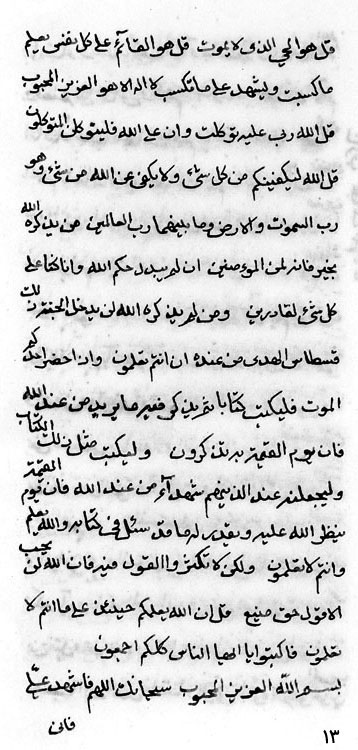 قل هو الحي الذي لا يموت قل هو القائم على كل نفس يعلم
ما كسبت وليشهد على ما تكسب لا اله الا هو العزيز المحبوب
قل الله رب عليه توكلت وان على الله فليتوكلن المتوكلون
قل الله ليكفينكم من كل شئ ولا يكفي عن الله من شئ وهو
رب السموات والارض وما بينهما رب العالمين من يذكره الله
بخير فانه لمن المؤمنين ان لم يبدل حكم الله وانا كنا على
كل شئ لقادرين ومن لم يذكره الله لن يدخل الجنة ذلك
قسطاس الهدى من عنده ان انتم تعلمون واذا حضر احدكم
الموت فليكتب كتابا ثم يذكر فيه ما يريد من عند الله
فان يوم القيمة به تذكرون وليكتب مثل ذلك الكتاب
وليجعلنه عند الذينهم شهداء من عند الله فان يوم القيمة
ينظر الله عليه ويقدر له ما قد سئل في كتابه والله يعلم
وانتم لا تعلمون ولكن لا تكثروا القول فيه فان الله لن يحب
الا قول حق منيع قل ان الله يعلمكم حينئذ على ما انتم لا
تعلمون فاكتبوا يا ايها الناس كلكم اجمعون
بسم الله العزيز المحبوب سبحانك اللهم فاشهد علي
فاني
١٣